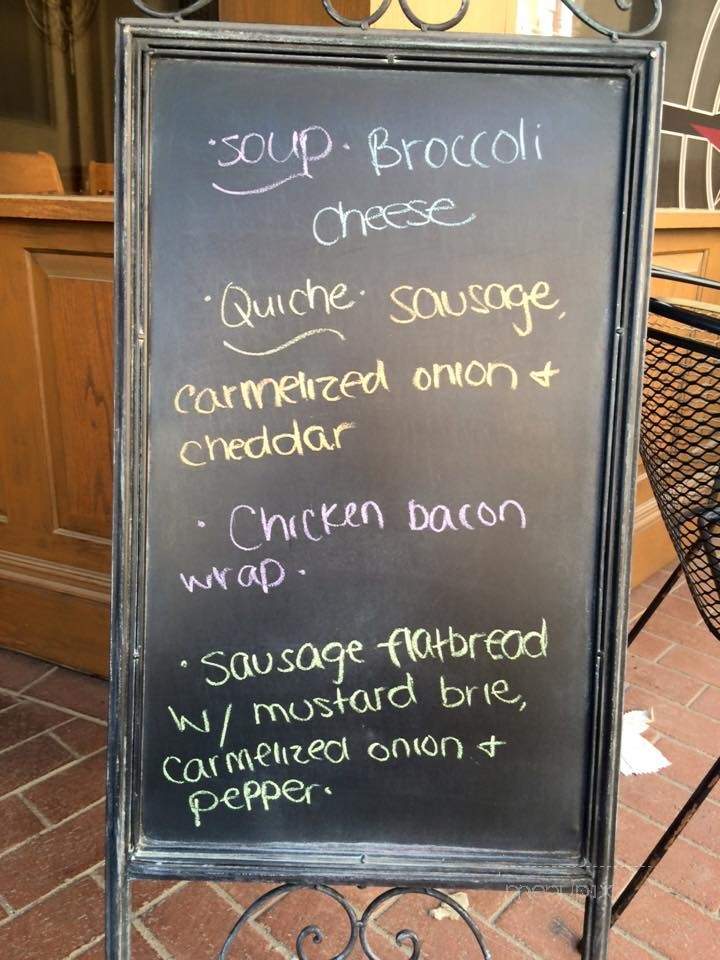 ·soup· Broccoli
cheese
·Quiche· sausage,
carmelized onion &
cheddar
· Chicken bacon
wrap·
· Sausage flatbread
w/ mustard brie,
carmelized onion &
pepper·
menupix